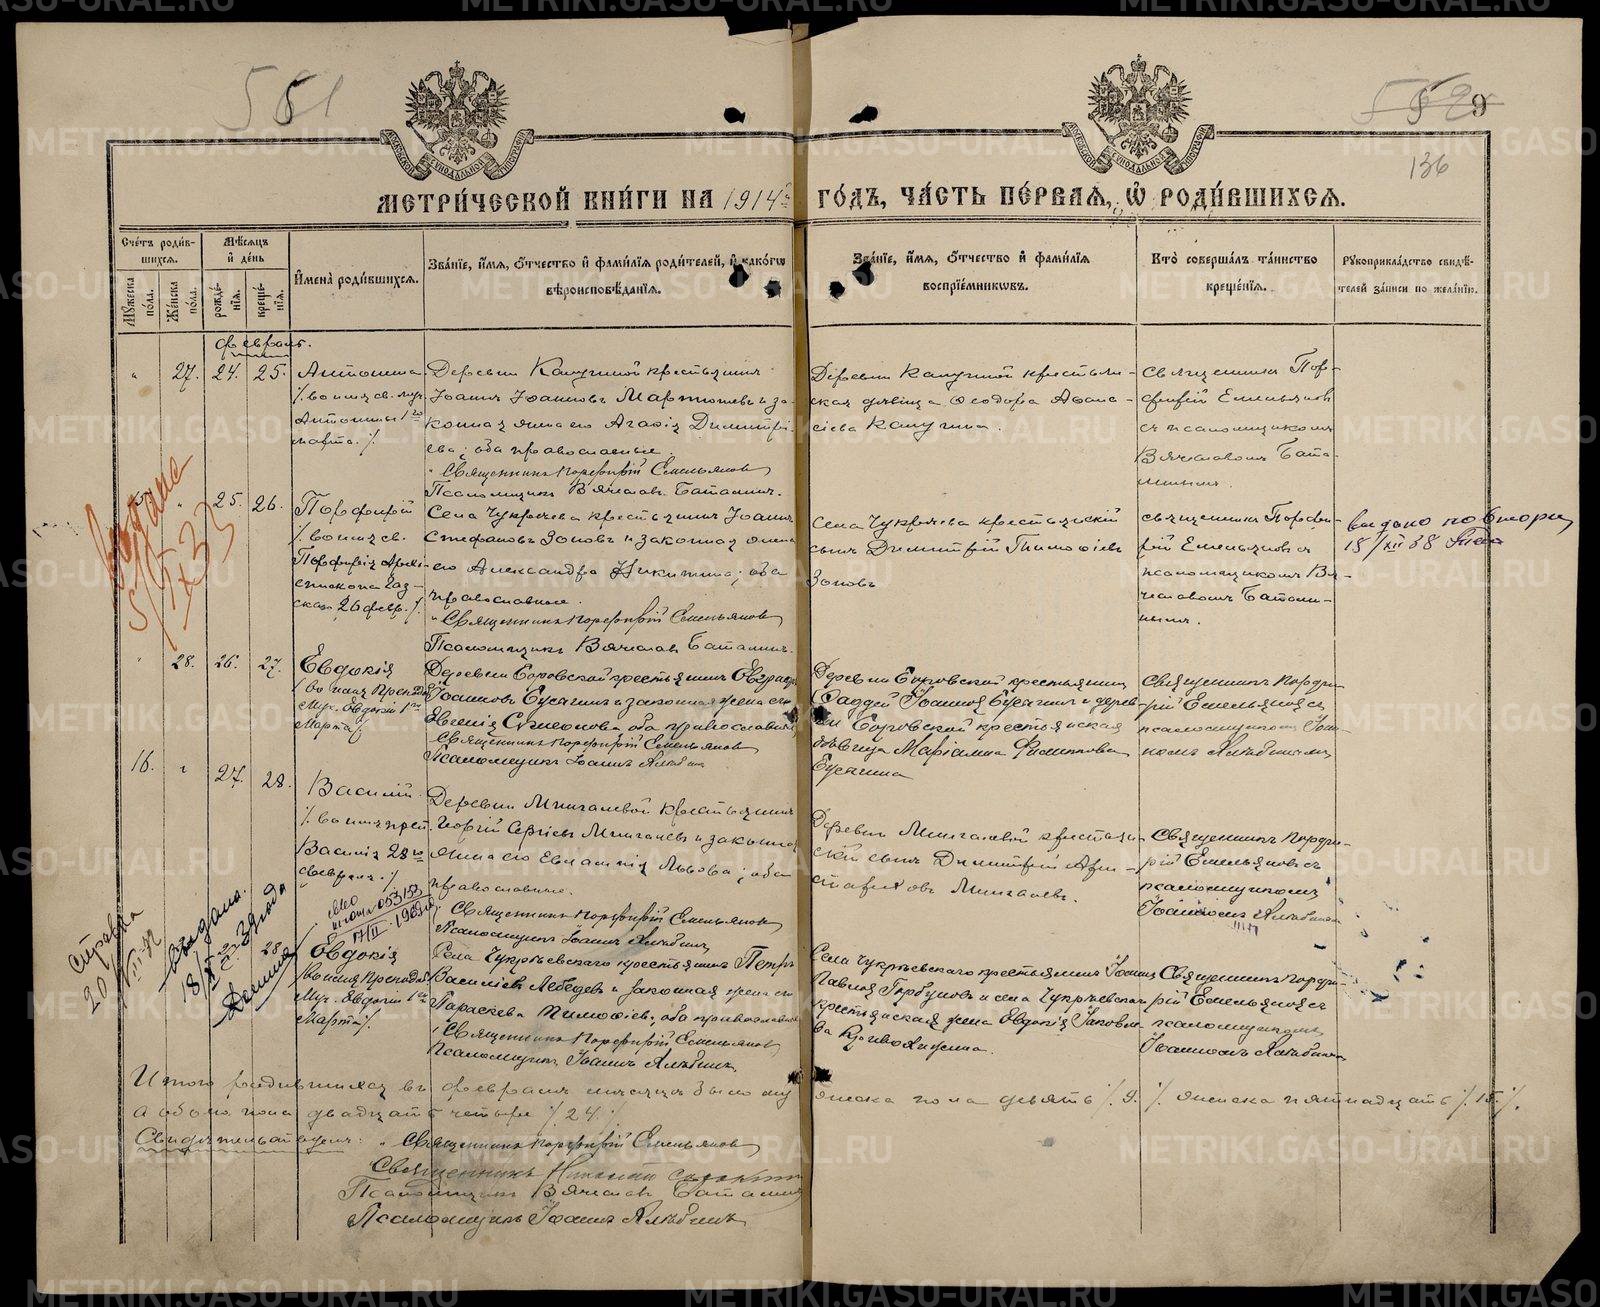 561
552
9
136
МЕТРИЧЕСКОЙ КНИГИ НА 1914й ГОДЪ, ЧАСТЬ ПЕРВАЯ, Ѡ РОДИВШИХСЯ.
Счетъ родив-
шихся.
Мужеска
пола.
Женска
пола.
Мѣсяцъ
и день
рожде-
нія.
креще-
нія.
Имена родившихся.
Званіе, имя, отчество и фамилія родителей, и какогѡ
вѣроисповѣданія.
Званіе, имя, отчество и фамилія
воспріемниковъ.
Кто совершалъ таинство
крещенія.
Рукоприкладство свидѣ-
телей записи по желанію.
февраль.
27. 24. 25.
Антонина
/. во имя св. муч.
Антонины 1го
марта. /.
Деревни Калугиной крестьянинъ
Іоаннъ Іоанновъ Мартюшевъ и за-
конная жена его Агафія Димитрі-
ева; оба православные.
Священникъ Порфирій Емельяновъ
Псаломщикъ Вячеславъ Баталинъ.
Деревни Калугиной крестьян-
ская дѣвица Ѳеодора Аѳана-
сіева Калугина.
Священникъ Пор-
фирій Емельяновъ
съ псаломщикомъ
Вячеславомъ Бата-
линымъ.
25. 26.
Порфирій
/. во имя св.
Порфирія Архі-
епископа Газ-
скаго 26 февр. /.
Села Чукреева крестьянинъ Іоаннъ
Стефановъ Зоновъ и законная жена
его Александра Никитина; оба
православные.
Священникъ Порфирій Емельяновъ
Псаломщикъ Вячеславъ Баталинъ.
Села Чукреева крестьянскій
сынъ Димитрій Тимоѳіевъ
Зоновъ
священникъ Порфи-
рій Емельяновъ съ
псаломщикомъ Вя-
чеславомъ Батали-
нымъ.
выдано повторн
15/XII 38
Выдано
5/IX 33
28. 26. 27.
Евдокія
/во имя Препод.
Муч. Евдокіи 1го
Марта/.
Деревни Боровской крестьянинъ
Іоанновъ Бусыгинъ и законная жена его
Евгенія Симеонова оба православные
Священникъ Порфирій Емельяновъ
Псаломщикъ Іоаннъ Хлѣбинъ
Деревни Боровской крестьянинъ
Ѳаддей Іоанновъ Бусыгинъ и дерев-
ни Боровской крестьянская
дѣвица Маріамна Филиппова
Бусыгина
Священникъ Порфи-
рій Емельяновъ съ
псаломщикомъ Іоан-
номъ Хлѣбинымъ
16. 27. 28.
Василій
/. во имя преп.
Василія 28го
февраля. /.
Деревни Мингалевой крестьянинъ
Георгій Сергіевъ Мингалевъ и законная
жена его Евлампія Львова; оба
православные.
Священникъ Порфирій Емельяновъ
Псаломщикъ Іоаннъ Хлѣбинъ
Деревни Мингалевой крестьян-
скій сынъ Димитрій
Мингалевъ.
Священникъ Порфи-
рій Емельяновъ съ
псаломщикомъ
Іоанномъ Хлѣбинымъ
справка
выдано.
28
Евдокія
/во имя Препод.
Муч. Евдокіи 1го
Марта/.
Села Чукреевскаго крестьянинъ Петръ
Василіевъ Лебедевъ и законная жена его
Параскева Тимоѳіева, оба православные
Священникъ Порфирій Емельяновъ
Псаломщикъ Іоаннъ Хлѣбинъ
Села Чукреевскаго крестьянинъ Іоаннъ
Павловъ Горбуновъ и села Чукреевскаго
крестьянская жена Евдокія Іаковле-
ва
Священникъ Порфи-
рій Емельяновъ съ
псаломщикомъ
Іоанномъ Хлѣбинымъ
Итого родившихся въ февралѣ мѣсяцѣ было му
жеска пола девять /. 9. /. женска пятнадцать /. 15. /.
а обоего пола двадцать четыре /. 24. /.
Свидѣтельствуемъ: Священникъ Порфирій Емельяновъ
Священникъ Николай
Псаломщикъ Вячеславъ Баталинъ
Псаломщикъ Іоаннъ Хлѣбинъ
METRIKI.GASO-URAL.RU